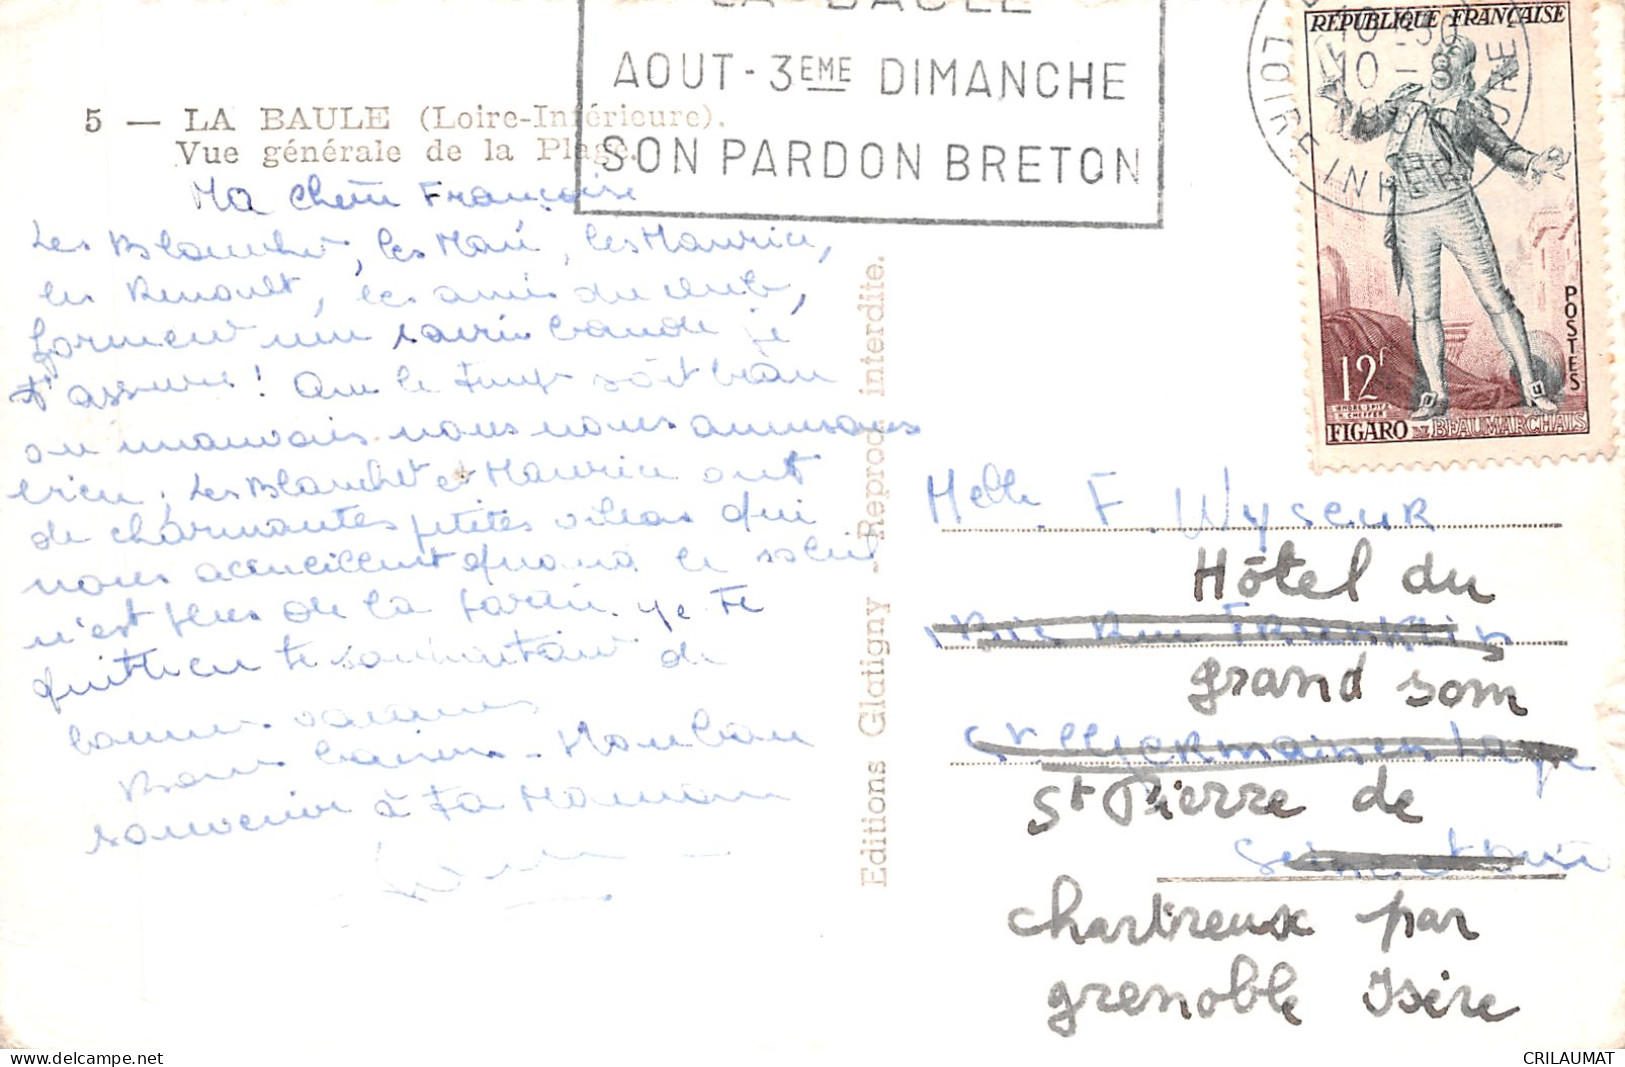 LA BAULE
AOUT - 3EME DIMANCHE
SON PARDON BRETON
10-30
10-8
LOIRE INFER
REPUBLIQUE FRANÇAISE
POSTES
12F
FIGARO DE BEAUMARCHAIS
5 — LA BAULE (Loire-Inférieure).
Vue générale de la Plage.
Ma chère Françoise
Les Blanchet, les Mané, les Maurice,
les Renault, les amis du club,
forment une sacrée bande je
t'assure ! Que le temps soit beau
ou mauvais nous nous amusons
bien. Les Blanchet et Maurice ont
de charmantes petites villas qui
nous accueillent quand le soleil
n'est plus de la partie. Je te
quitte en te souhaitant de
bonnes vacances
Bons baisers -
souvenir à ta Maman
Editions Glatigny - Reprod. interdite.
Melle F. Wyseur
Hôtel du
Rue Franklin
grand som
St Germain en Laye
St Pierre de
Seine et Oise
chartreux par
grenoble Isère
delcampe.net
CRILAUMAT